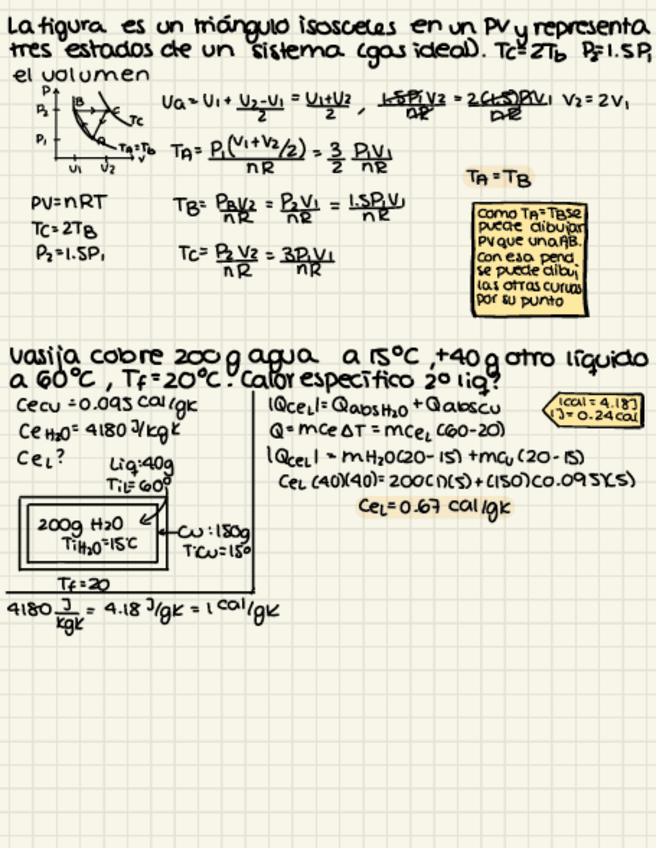 La figura es un triángulo isosceles en un PV y representa
tres estados de un sistema (gas ideal). Tc=2Tb P2=1.5P1
el volumen
P
P2
P1
B
C
A
TC
TA=TB
V
V1 V2
Va = V1 + V2-V1/2 = V1+V2/2 , 1.5P1V2/nR = 2(1.5)P1V1/nR V2=2V1
TA = P1(V1+V2/2)/nR = 3/2 P1V1/nR
TA=TB
PV=nRT
TC=2TB
P2=1.5P1
TB = PBV2/nR = P2V1/nR = 1.5P1V1/nR
TC = P2V2/nR = 3P1V1/nR
como TA=TB se
puede dibujar
PV que una AB.
con esa pend
se puede dibuj
las otras curvas
por su punto
Vasija cobre 200 g agua a 15°C , +40 g otro líquido
a 60°C , Tf=20°C. Calor específico 2º liq?
Cecu = 0.095 cal/gk
CeH2O = 4180 J/kgk
CeL?
Liq:40g
TiL=60°
200g H2O
TiH2O=15°C
Cu:150g
TiCu=15°
Tf=20
4180 J/kgk = 4.18 J/gk = 1 cal/gk
|QceL| = QabsH2O + Qabscu
Q = mCeΔT = mCeL (60-20)
|QceL| = mH2O(20-15) + mcu(20-15)
CeL (40)(40) = 200(1)(5) + (150)(0.095)(5)
CeL = 0.67 cal/gk
1cal = 4.18J
1J = 0.24cal